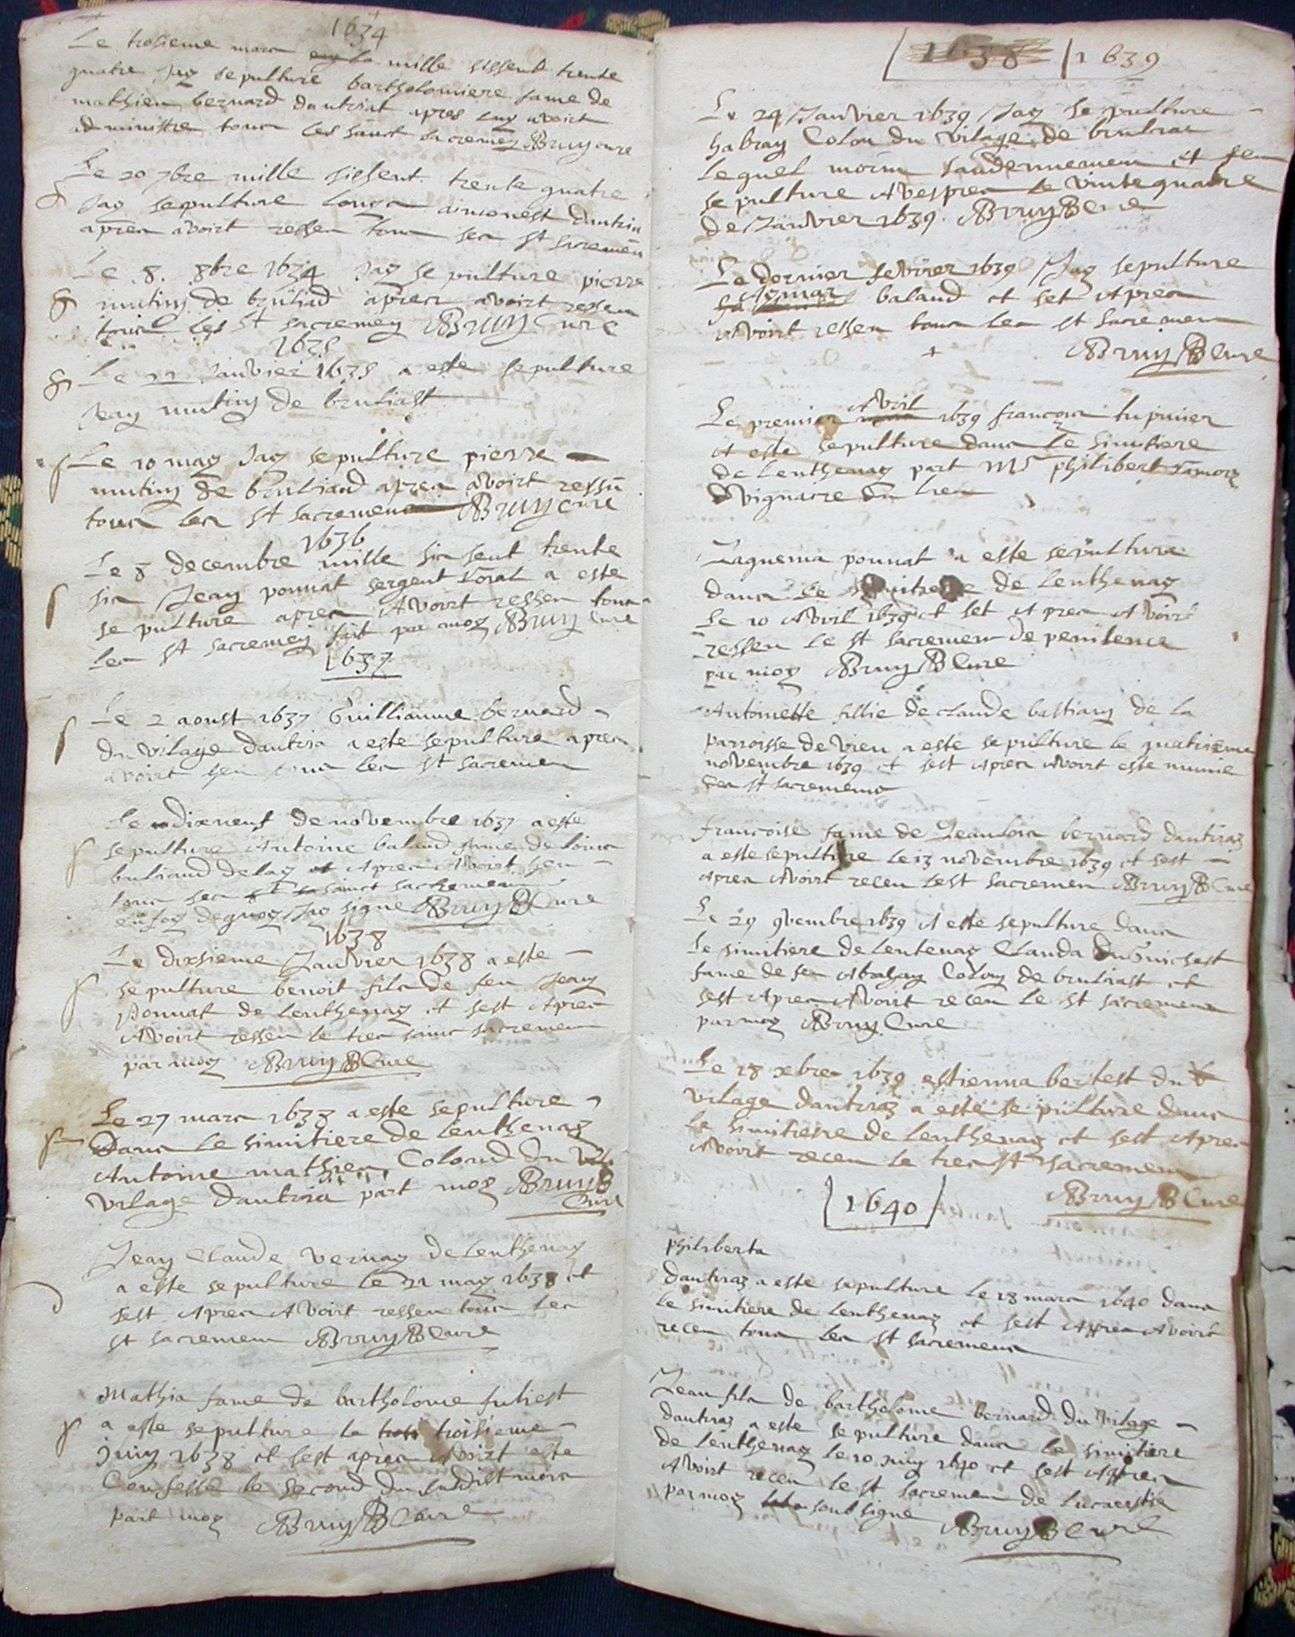 1634
Le troisieme mars mille sissent trente
quatre Jay sepulture bartholomiere fame de
mathieu bernard dautriat apres luy avoirt
administre tous les sainct sacremen Bruy cure
Le 20 7bre mille sissent trente quatre
Jay sepulture
apres avoirt ressu tous ses st sacremen
Le 8. 8bre 1634 Jay sepulture pierre
mutin de bruliad apres avoirt ressu
tous les st sacremen Bruy Cure
1635
Le 22 Janvier 1635 a este sepulture
Jean mutin de bruliast
Le 10 may Jay sepulture pierre
mutin de bruliand apres avoirt ressu
tous les st sacremens Bruy Cure
1636
Le 8 decembre mille sis sent trente
sis Jean ponnat sergent roial a este
sepulture apres Avoirt ressu tous
les st sacremen fait par moy Bruy Cure
1637
Le 2 aoust 1637 Guillaume bernard
du vilage dautria a este sepulture apres
avoirt tous les st sacremen
Le dixneuf de novembre 1637 a este
sepulture Antoine baland fame de louis
bruliand et Apres Avoirt
tous ses sainct sacremens
en foy de quoy Jay signe Bruy Cure
1638
Le dixsieme Janvier 1638 a este
sepulture benoit fils de feu Jean
Ponnat de lenthenay et sest Apres
Avoirt ressu le tres sainc sacremen
par moy Bruy Cure
Le 27 mars 1638 a este sepulture
Dans le simitiere de lenthenay
Antoine mathieu Colond du
vilage dautria part moy Bruy
Cure
Jean Claude vernay de lenthenay
a este sepulture le 21 may 1638 et
sest Apres Avoirt ressu tous les
st sacremen Bruy Cure
Mathia fame de bartholome
a este sepulture la troisieme
Juin 1638 et sest apres Avoirt este
Confesse le second du mois
part moy Bruy Cure
1638 1639
Le 24 Janvier 1639 Jay sepulture
habran Colon du vilage de brulias
lequel morut et feu
sepulture A vespres le vintequatre
de Janvier 1639. Bruy Cure
Le dernier fevrier 1639 Jay sepulture
baland et set Apres
Avoirt ressu tous les st sacremen
Bruy Cure
Le premier Avril 1639 francois
A este sepulture dans Le simitiere
de Lenthenay part Mr philibert
vignacre lieu
Jaquema ponnat a este sepulture
dans le de lenthenay
Le 10 Avril 1639 et set Apres Avoirt
ressu le st sacremen de penitence
par moy Bruy Cure
Antoinette fillie de claude bastian de la
parroisse de vieu a este sepulture le quatrieme
novembre 1639 et sest Apres Avoirt este munie
ses st sacremens
francoise fame de Jean bernard dautriaz
a este sepulture le 13 novembre 1639 et sest
Apres Avoirt receu le st sacremen Bruy Cure
Le 29 9vembre 1639 A este sepulture dans
Le simitiere de Lentenay Clauda
fame de feu Colon de bruliast et
sest Apres Avoirt receu le st sacremens
par moy Bruy Cure
Le 18 xbre 1639 estienna bertest du
vilage dautriaz a este sepulture dans
le simitiere de lenthenay et sest Apres
Avoirt receu le tres st sacremen
Bruy Cure
1640
philiberta
dautriaz a este sepulture le 18 mars 1640 dans
Le simitiere de lenthenay et sest Appres Avoirt
receu tous les st sacremens
Jean fils de bartholome bernard du vilage
dautriaz a este sepulture dans le simitiere
de lenthenay le 10 Juin 1640 et sest Appres
Avoirt receu le st sacremen de
par moy soubsigne Bruy Cure